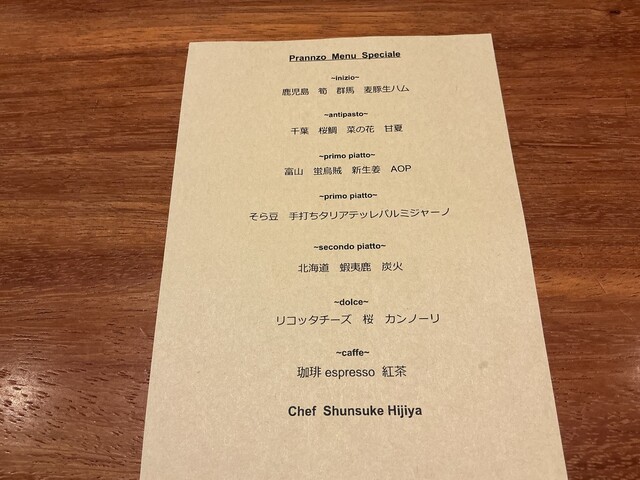 Prannzo Menu Speciale
~inizio~
鹿児島 筍 群馬 麦豚生ハム
~antipasto~
千葉 桜鯛 菜の花 甘夏
~primo piatto~
富山 蛍烏賊 新生姜 AOP
~primo piatto~
そら豆 手打ちタリアテッレパルミジャーノ
~secondo piatto~
北海道 蝦夷鹿 炭火
~dolce~
リコッタチーズ 桜 カンノーリ
~caffe~
珈琲 espresso 紅茶
Chef Shunsuke Hijiya